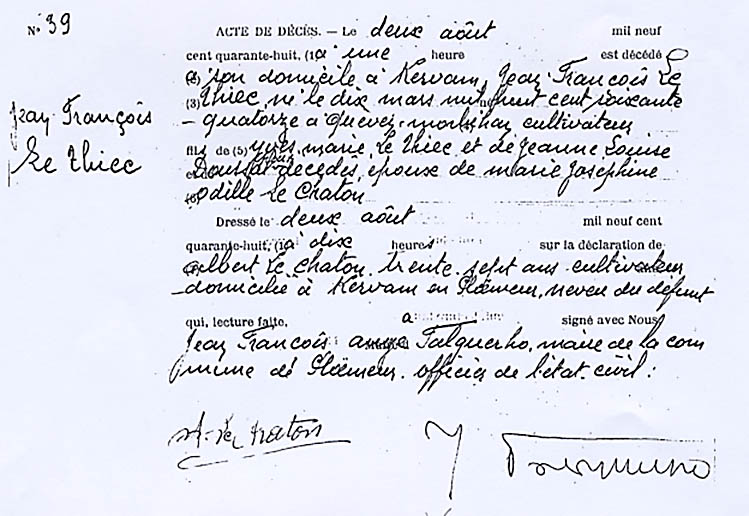 N° 39
Jean François
Le Thiec
ACTE DE DÉCÈS. — Le deux août mil neuf
cent quarante-huit, (1) à une heure est décédé
(2) son domicile à Kervam, Jean François Le
(3) Thiec né le dix mars mil huit cent soixante
- quatorze à Quéven, morbihan cultivateur
fils de (5) yves, marie, Le Thiec et de Jeanne Louise
décédés, époux de marie Josephine
(6) odille Le Chaton
Dressé le deux août mil neuf cent
quarante-huit, (1) à dix heures sur la déclaration de
albert Le Chaton, trente-sept ans cultivateur
domicilié à Kervam en Ploemeur, neveu du défunt
qui, lecture faite, a signé avec Nous
Jean François Talguerho, maire de la com
mune de Ploemeur, officier de l'état-civil :
A. Le Chaton